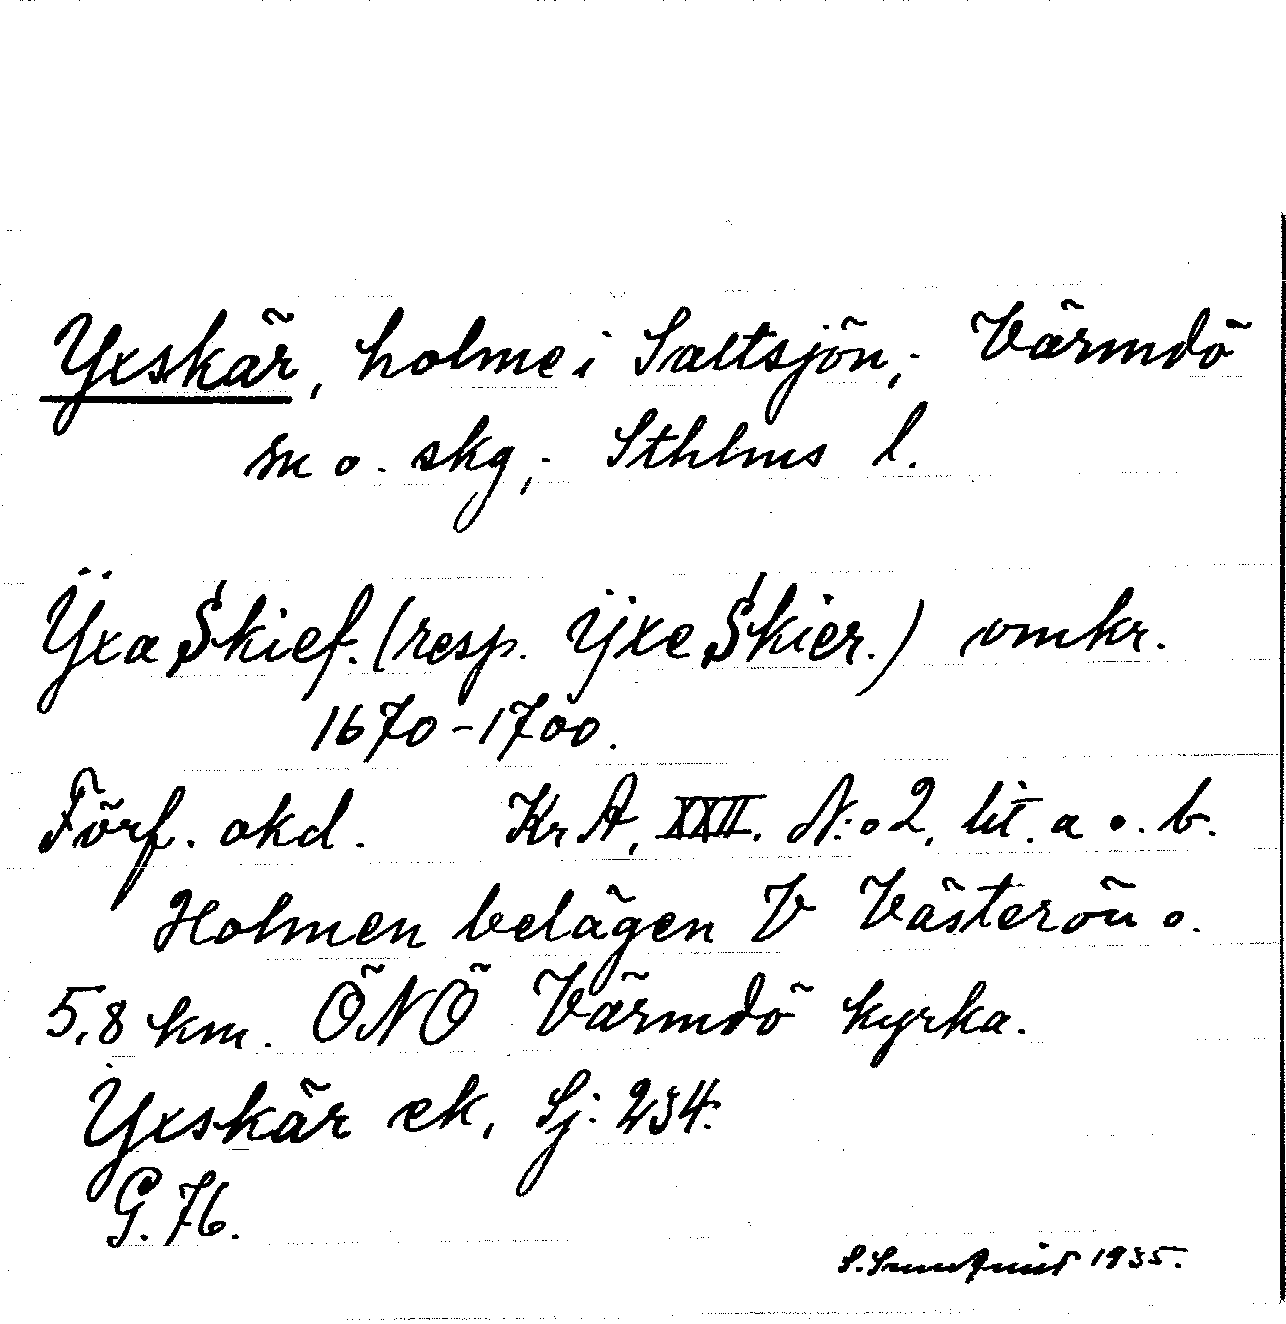 Yxskär, holme i Saltsjön,- Värmdö
sn o. skg,- Sthlms l.
Ÿxa Skief. (resp. ÿxe Skier.) omkr.
1670-1700.
Förf. okd. Kr A, XXII. N:o 2, lit. a o. b.
Holmen belägen V Västerön o.
5,8 km. ÖNÖ Värmdö kyrka.
Yxskär ek, Sj: 234.
G. 76.
S. Sundquist 1935.